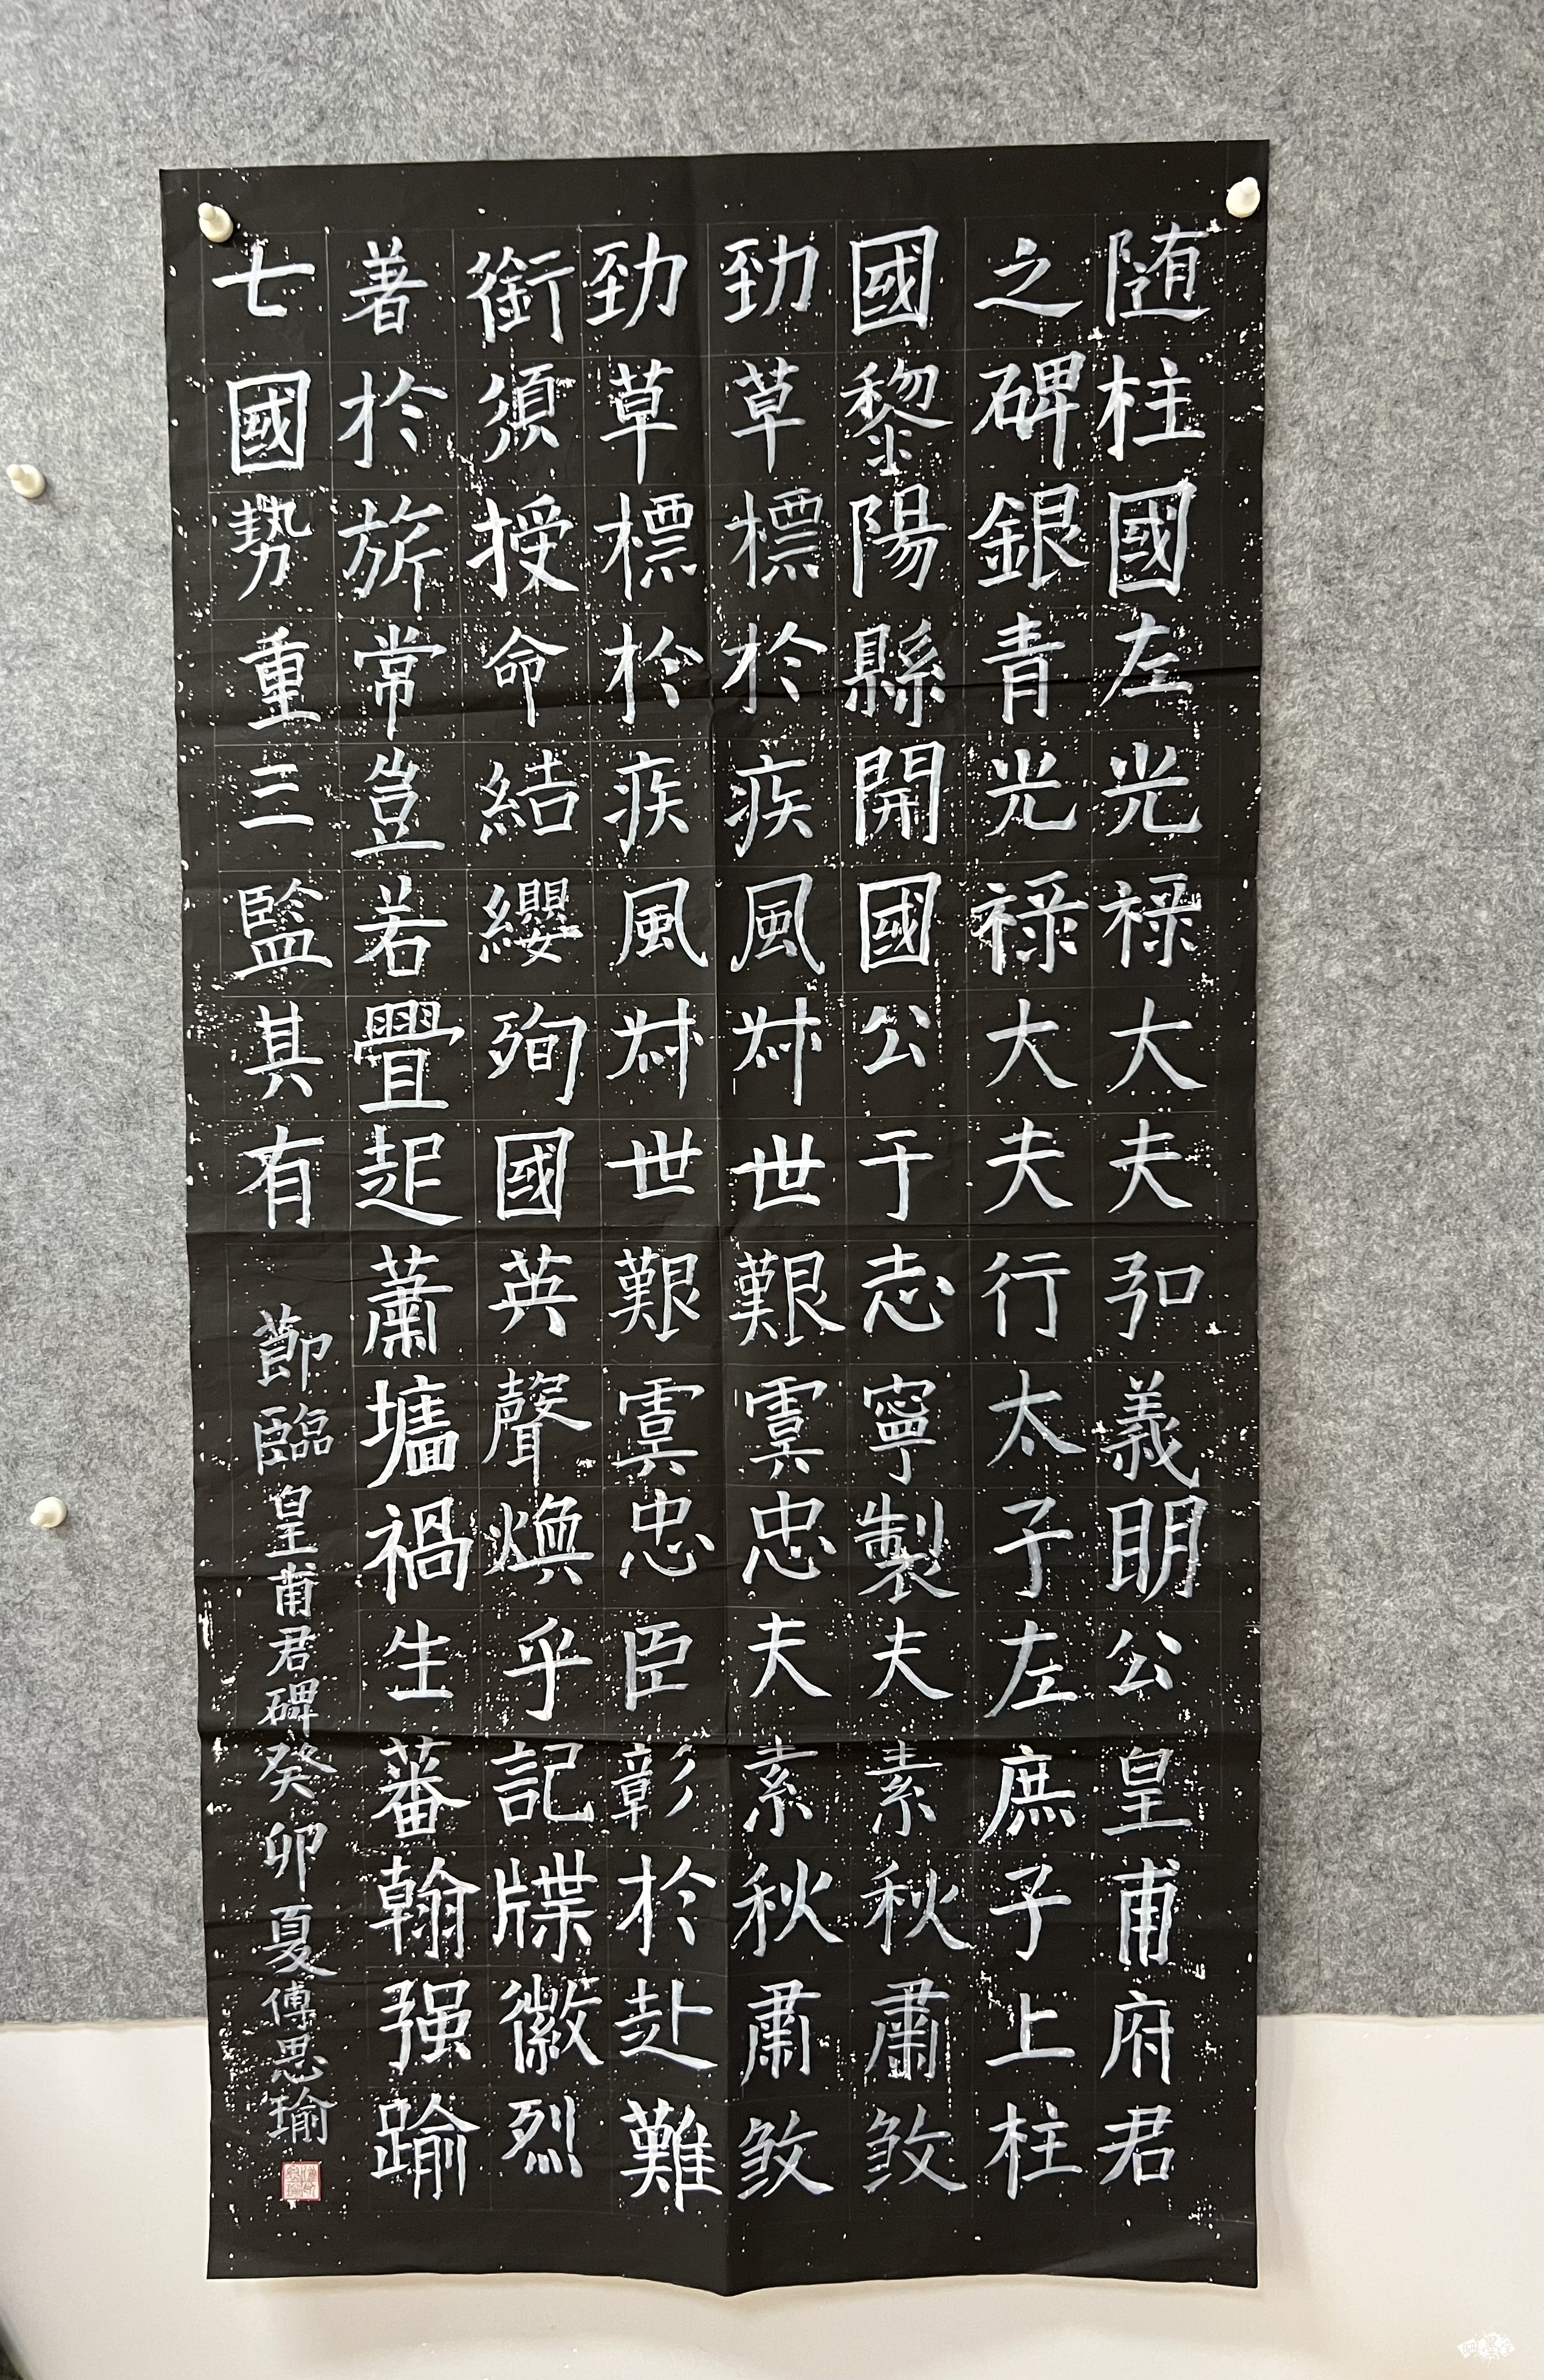 随柱國左光禄大夫弘義明公皇甫府君
之碑銀青光禄大夫行太子左庶子上柱
國黎陽縣開國公于志寧製夫素秋肅煞
勁草標於疾風叔世艱虞忠夫素秋肅煞
勁草標於疾風叔世艱虞忠臣彰於赴難
銜須授命結纓殉國英聲煥乎記牒徽烈
著於旂常豈若疊起蕭墻禍生蕃翰强踰
七國勢重三監其有
節臨皇甫君碑癸卯夏傅思瑜